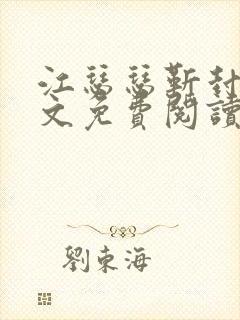 江瑟瑟靳封
文免費閱讀
劉東海